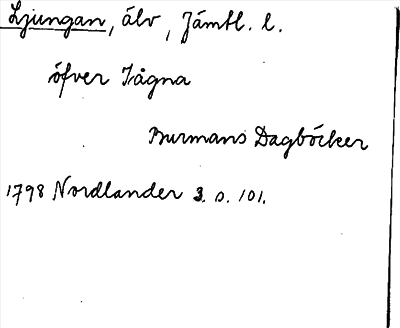 Ljungan, älv, Jämtl. l.
öfver Jågna
Burmans Dagböcker
1798 Nordlander 3. s. 101.